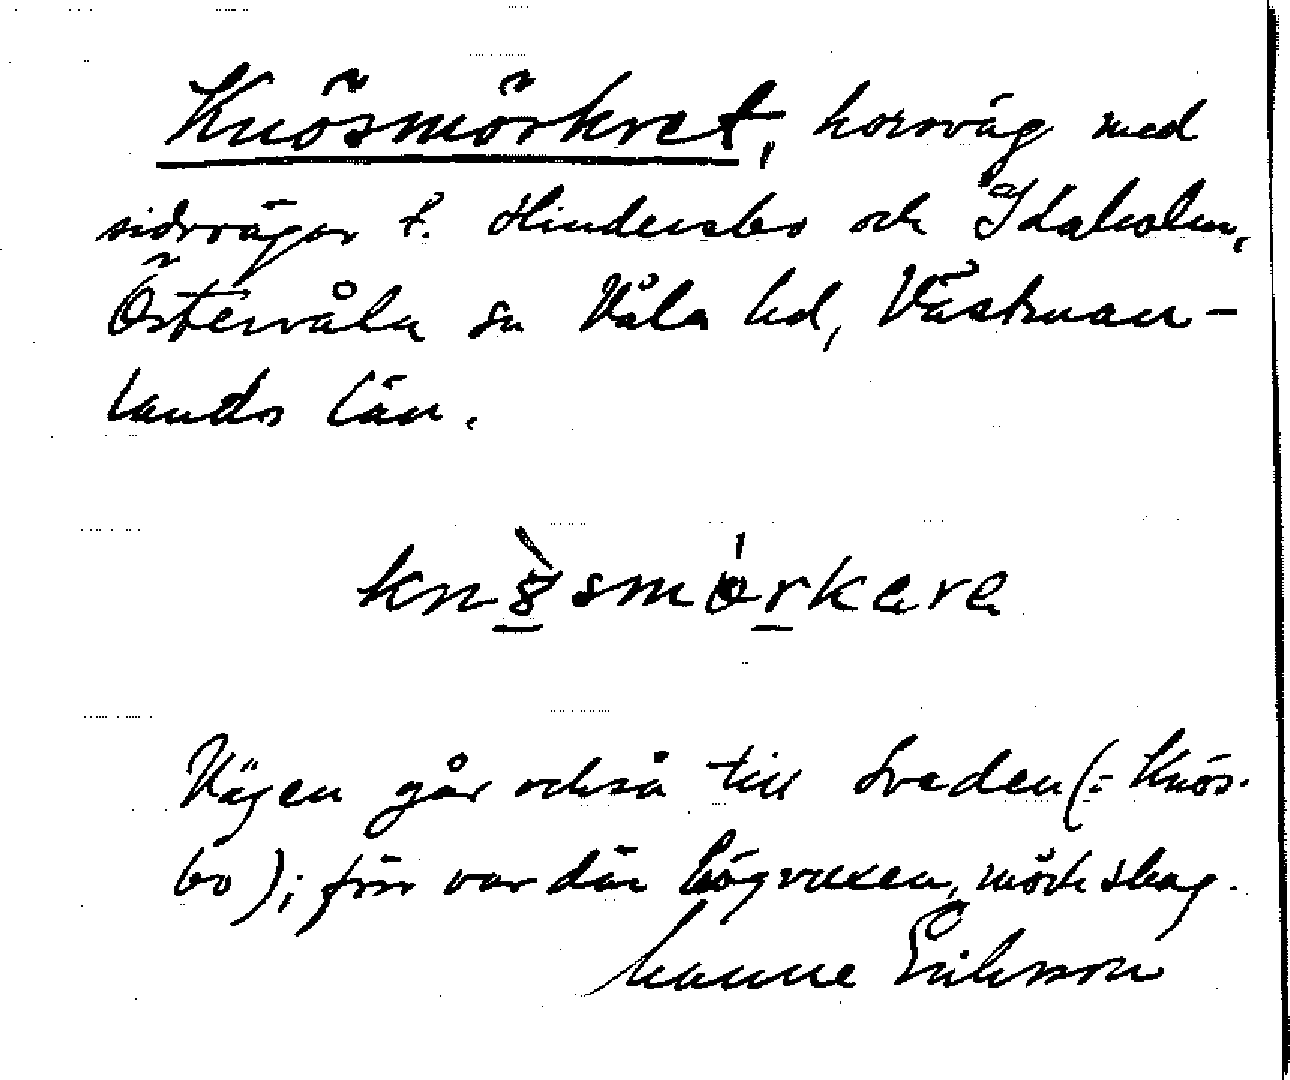 Knösmörkret, korsväg med
sidovägar t. Hindersbo och Idaholm,
Östervåla sn Våla hd, Västman-
lands län.
knösmörkara
Vägen går också till Sveden (: Knös-
bo); förr var där högvuxen, mörk skog.
Manne Eriksson